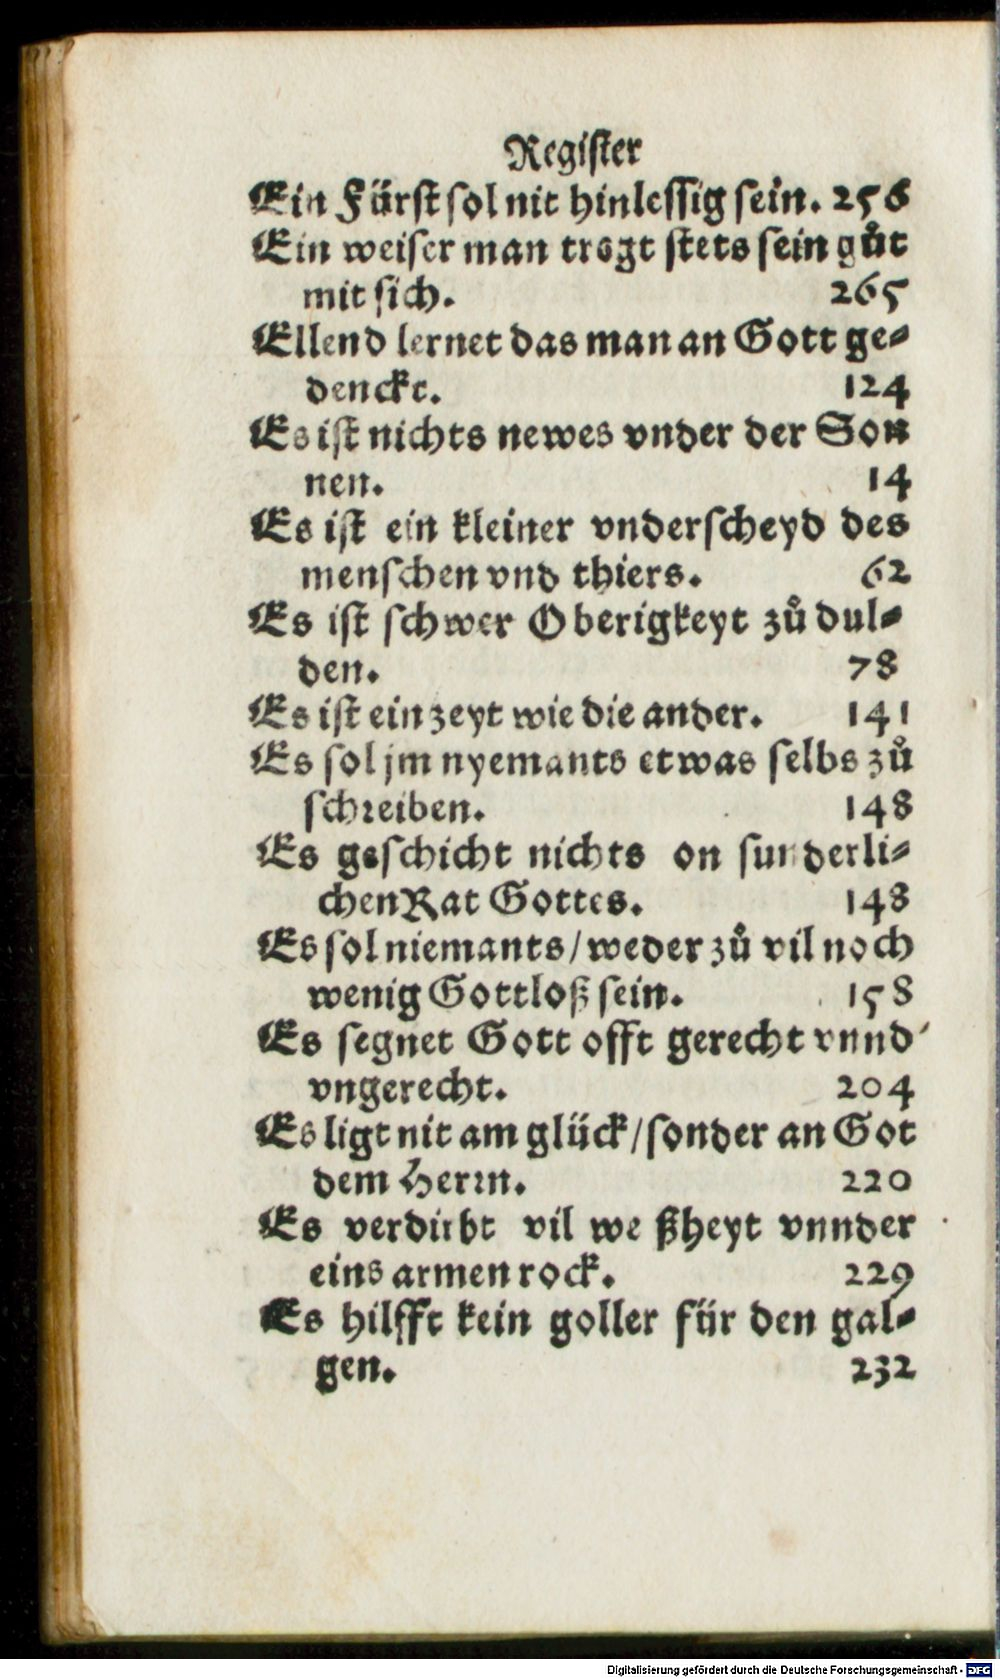 Register
Ein Fürst sol nit hinlessig sein. 256
Ein weiser man tregt stets sein gůt
mit sich. 265
Ellend lernet das man an Gott ge⸗
denckt. 124
Es ist nichts newes vnder der Son
nen. 14
Es ist ein kleiner vnderscheyd des
menschen vnd thiers. 62
Es ist schwer Oberigkeyt zů dul⸗
den. 78
Es ist ein zeyt wie die ander. 141
Es sol jm nyemants etwas selbs zů
schreiben. 148
Es geschicht nichts on sunderli⸗
chen Rat Gottes. 148
Es sol niemants / weder zů vil noch
wenig Gottloß sein. 158
Es segnet Gott offt gerecht vnnd
vngerecht. 204
Es ligt nit am glück / sonder an Got
dem Herrn. 220
Es verdirbt vil we ßheyt vnnder
eins armen rock. 229
Es hilfft kein goller für den gal⸗
gen. 232
Digitalisierung gefördert durch die Deutsche Forschungsgemeinschaft - DFG